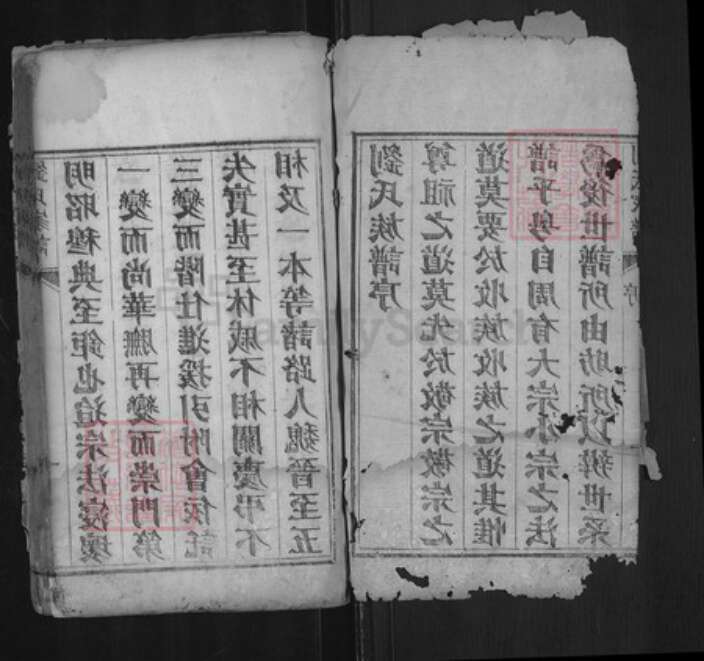 劉氏族譜序
尊祖之道莫先於敬宗敬宗之
道莫要於收族收族之道其惟
譜乎粵自周有大宗小宗之法
爲後世譜所由昉所以辨世系
序
明昭穆典至鉅也迨宗法寖壞
一變而尚華膴再變而崇門第
三變而階仕進援引附會依託
失實甚至休戚不相關慶弔不
相及一本等諸路人魏晉至五
劉氏家譜
FamilySearch